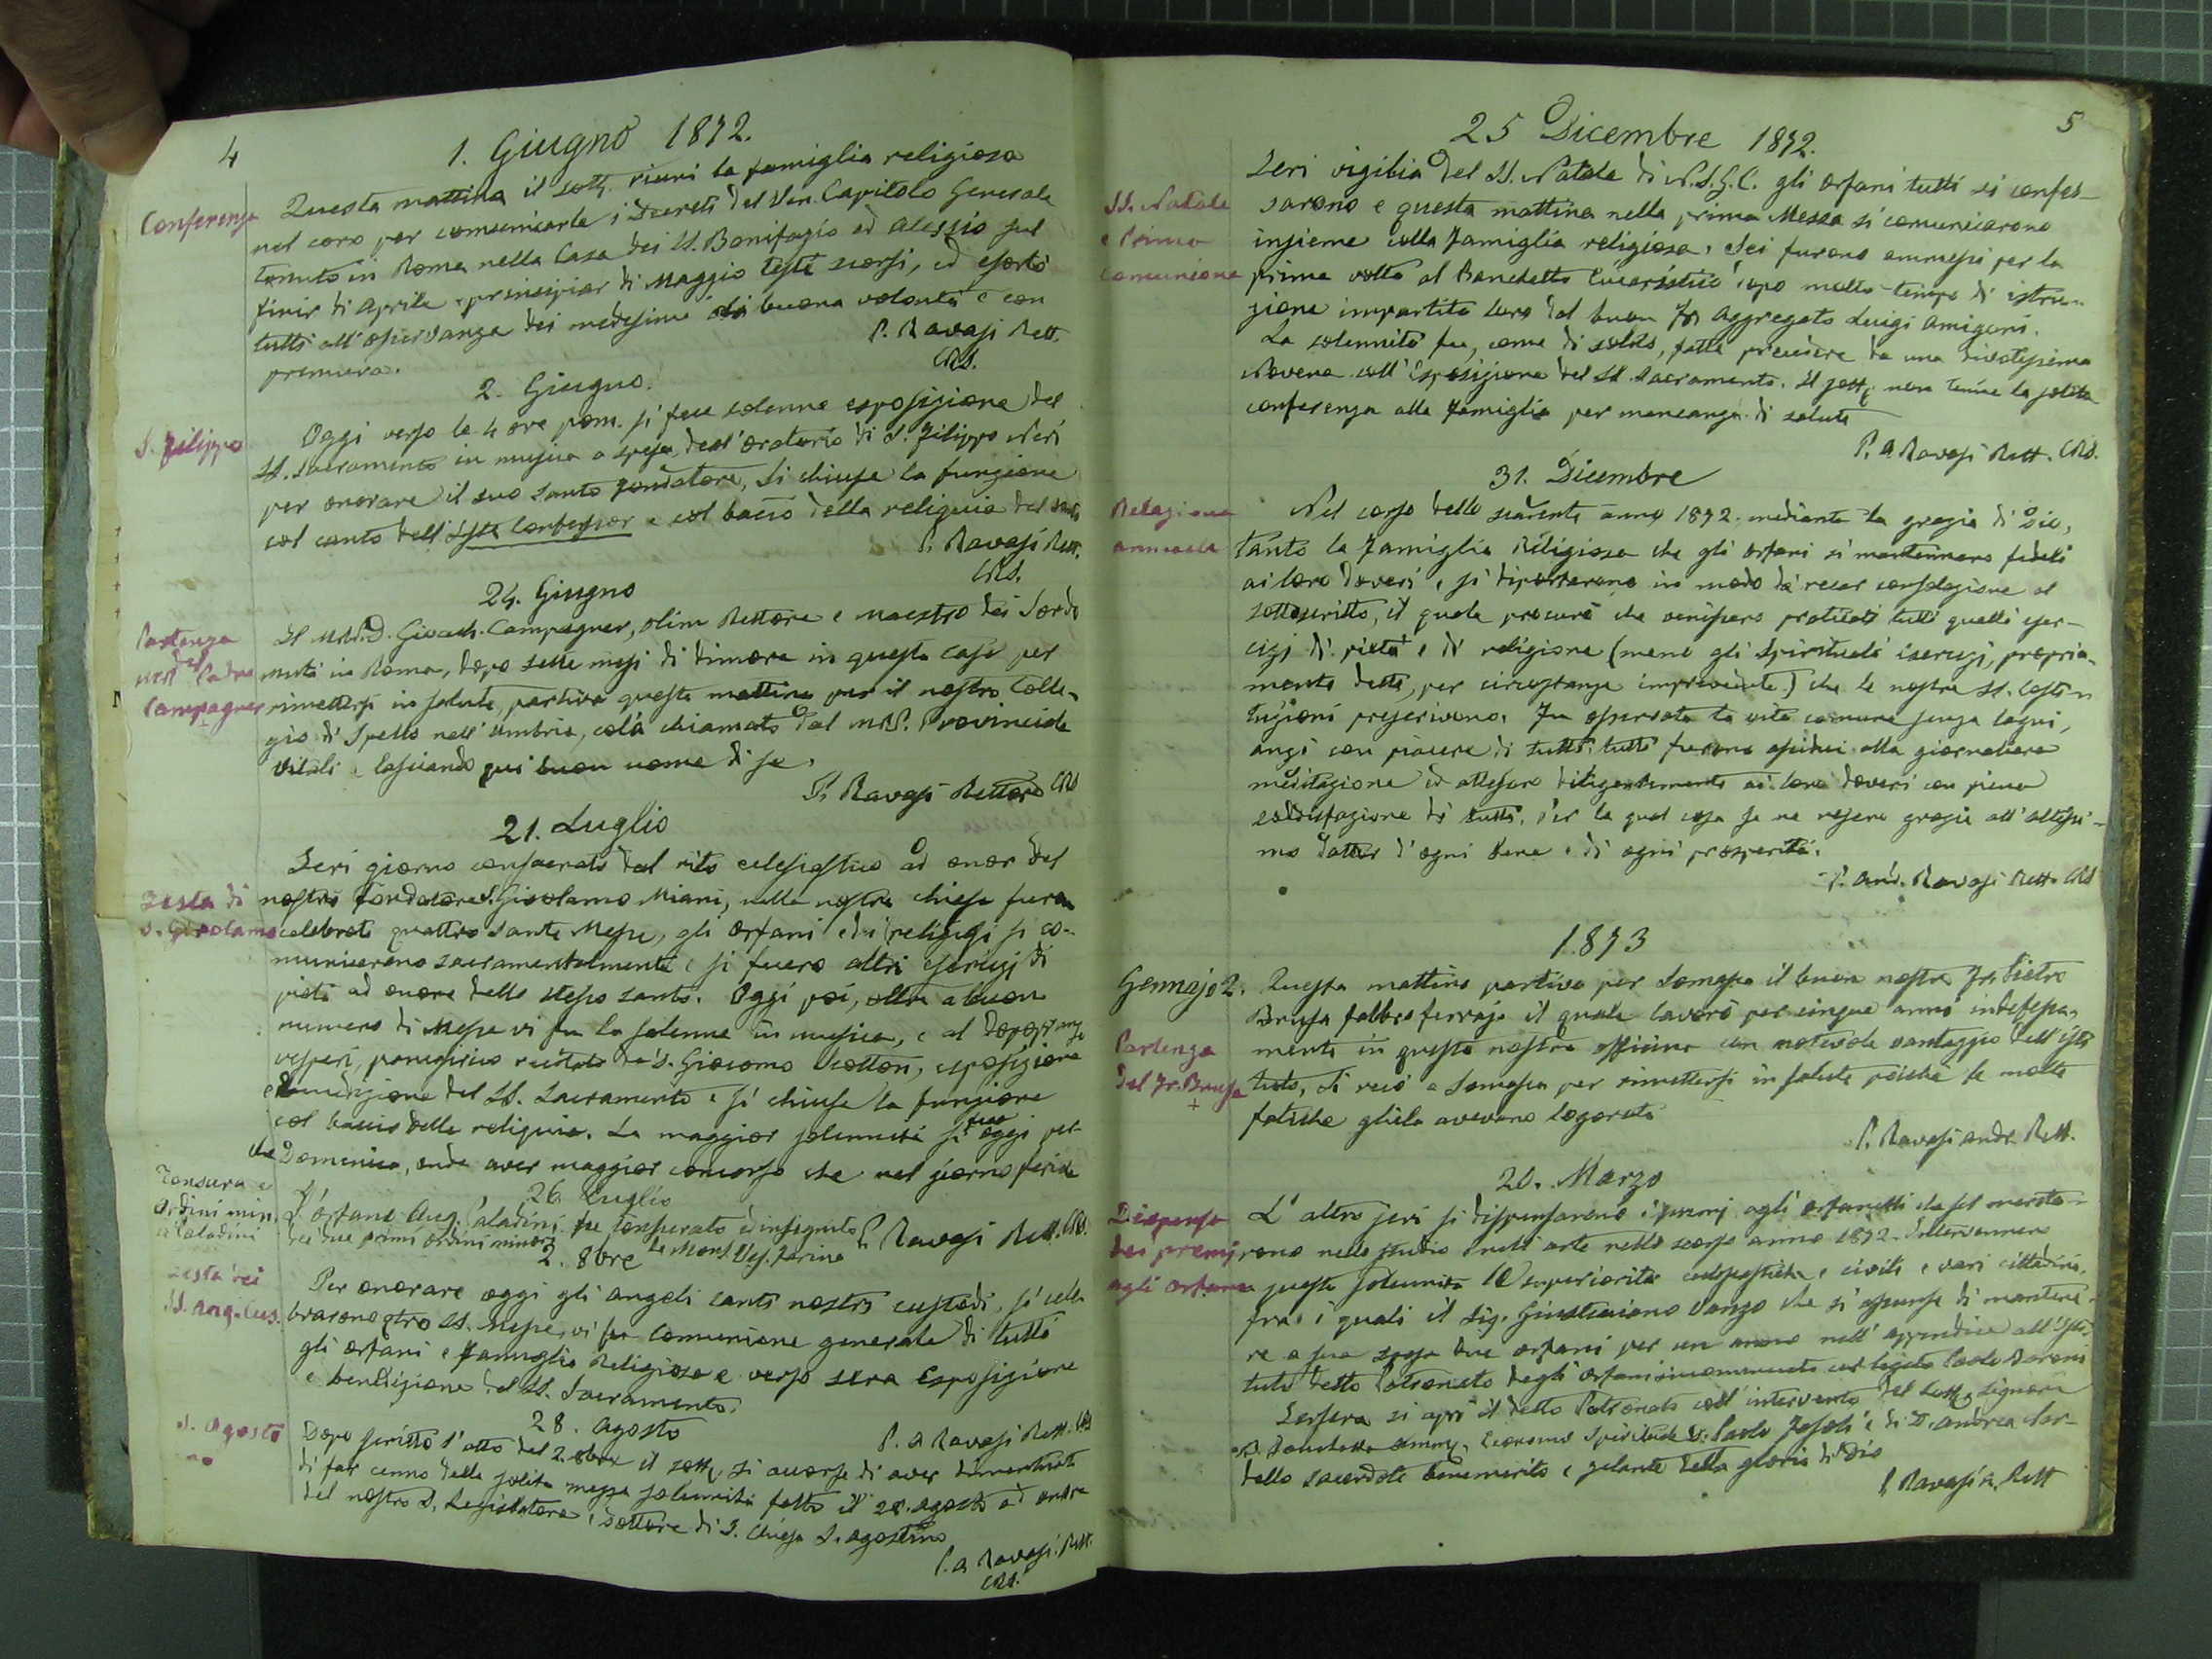 4
1. Giugno 1872.
Conferenza
Questa mattina il sott. riunì la famiglia religiosa
nel coro per comunicarle i Decreti del Ven. Capitolo Generale
tenuto in Roma nella Casa dei SS. Bonifazio ed Alessio sul
finir di Aprile e principiar di Maggio testè scorsi, ed esortò
tutti all'osservanza dei medesimi di buona volontà e con
premura.
P. Ravasi Rett.
CRS.
2. Giugno.
S. Filippo
Oggi verso le 4 ore pom. si fece solenne esposizione del
SS. Sacramento in musica a spese dell'oratorio di S. Filippo Neri
per onorare il suo Santo Fondatore, si chiuse la funzione
col canto dell'Iste Confessor e col bacio della reliquia del santo
P. Ravasi Rett.
CRS.
24. Giugno
Partenza
del
M.R. Padre
Campagner
Il M.R.P.D. Gioach. Campagner, olim Rettore e maestro dei Sordo
muti in Roma, dopo sette mesi di dimora in questa casa per
rimettersi in salute, partiva questa mattina per il nostro Colle-
gio di Spello nell'Umbria, colà chiamato dal M.R.P. Provinciale
Vitali e lasciando qui buon nome di se.
P. Ravasi Rettore CRS
21. Luglio
Festa di
S. Girolamo
Ieri giorno consacrato dal rito eclesiastico ad onor del
nostro Fondatore S. Girolamo Miani, nella nostra chiesa furon
celebrate quattro sante Messe, gli orfani ed i religiosi si co-
municarono sacramentalmente e si fecero altri esercizj di
pietà ad onore dello stesso santo. Oggi poi, oltre a buon
numero di Messe vi fu la solenne in musica, e al dopo pranzo
vesperi, panegirico recitato da D. Giacomo Scotton, esposizione
e benedizione del SS. Sacramento e si chiuse la funzione
col bacio della reliquia. La maggior solennità si fece oggi per
che Domenica, onde aver maggior concorso che nel giorno feriale
Tonsura e
Ordini min.
a Paladini
26. Luglio
L'orfano Aug. Paladini fu tonsurato ed insignito
dei due primi ordini minori da Mons. Ves. Farina
P. Ravasi Rett. CRS.
2. 8bre
Festa dei
SS. Ang. Cus.
Per onorare oggi gli angeli santi nostri custodi, si cele
brarono qtro SS. Messe, vi fu Comunione generale di tutti
gli orfani e famiglia Religiosa e verso sera Esposizione
e benedizione del SS. Sacramento.
P. A Ravasi Rett. CRS
28. Agosto
S. Agosti
no
Dopo scritto l'atto del 2. 8bre il sott. si accorse di aver dimenticato
di far cenno della solita mezza solennità fatta il 28. Agosto ad onore
del nostro S. Legislatore e dottore di S. Chiesa S. Agostino
P. A Ravasi. Rett.
CRS.
5
25 Dicembre 1872.
SS. Natale
e Prima
Comunione
Ieri vigilia del SS. Natale di N.S.G.C. gli orfani tutti si confes-
sarono e questa mattina nella prima Messa si comunicarono
insieme colla famiglia religiosa. Sei furono ammessi per la
prima volta al Banchetto Eucaristico dopo molto tempo di istru-
zione impartita loro dal buon Fr. Aggregato Luigi Amigoni.
La solennità fu, come di solito, fatta precedere da una divotissima
Novena coll'Esposizione del SS. Sacramento. Il sott. non tenne la solita
conferenza alla famiglia per mancanza di salute
P. A Ravasi Rett. CRS.
31. Dicembre
Relazione
annuale
Nel corso dello scadente anno 1872. mediante la grazia di Dio,
tanto la famiglia Religiosa che gli orfani si mantennero fedeli
ai loro doveri, e si diportarono in modo da recar consolazione al
sottoscritto, il quale procurò che venissero praticati tutti quelli eser-
cizj di pietà e di religione (meno gli Spirituali Esercizj, propria-
mente detti, per circostanze imprevedute) che le nostre SS. Costi-
tuzioni prescrivono. Fu osservata la vita comune senza lagni,
anzi con piacere di tutti: tutti furono assidui alla giornaliera
meditazione ed attesero diligentemente ai loro doveri con piena
soddisfazione di tutti. Per la qual cosa se ne resero grazie all'altissi-
mo dator d'ogni bene e di ogni prosperità.
P. And. Ravasi Rett. CRS
1873
Gennajo 2.
Partenza
del Fr. Brusa
+
Questa mattina partiva per Somasca il buon nostro Fr. Pietro
Brusa fabbro ferrajo il quale lavorò per cinque anni indefessa-
mente in questa nostra officina con notevole vantaggio dell'isti
tuto. Si recò a Somasca per rimettersi in salute poichè le molte
fatiche gliela avevano logorata
P. Ravasi Andr. Rett.
20. Marzo
Dispensa
dei premj
agli orfani
L'altro jeri si dispensarono i premj agli orfanelli che sel merita-
rono nello studio e nell'arte nello scorso anno 1872. Intervennero
a questa solennità le superiorità eclesiastiche e civili e vari cittadini,
fra i quali il Sig. Giustiniano Vanzo che si assunse di mantene-
re a sua spesa due orfani per un anno nell'appendice all'Isti-
tuto detto Patronato degli orfani incominciato col legato Paolo Baroni
Jersera si aprì il detto Patronato coll'intervento del sott. Signori
Economo Spirituale D. Paolo e di D. Andrea
dello sacerdote benemerito e zelante della gloria di Dio
P. Ravasi A. Rett